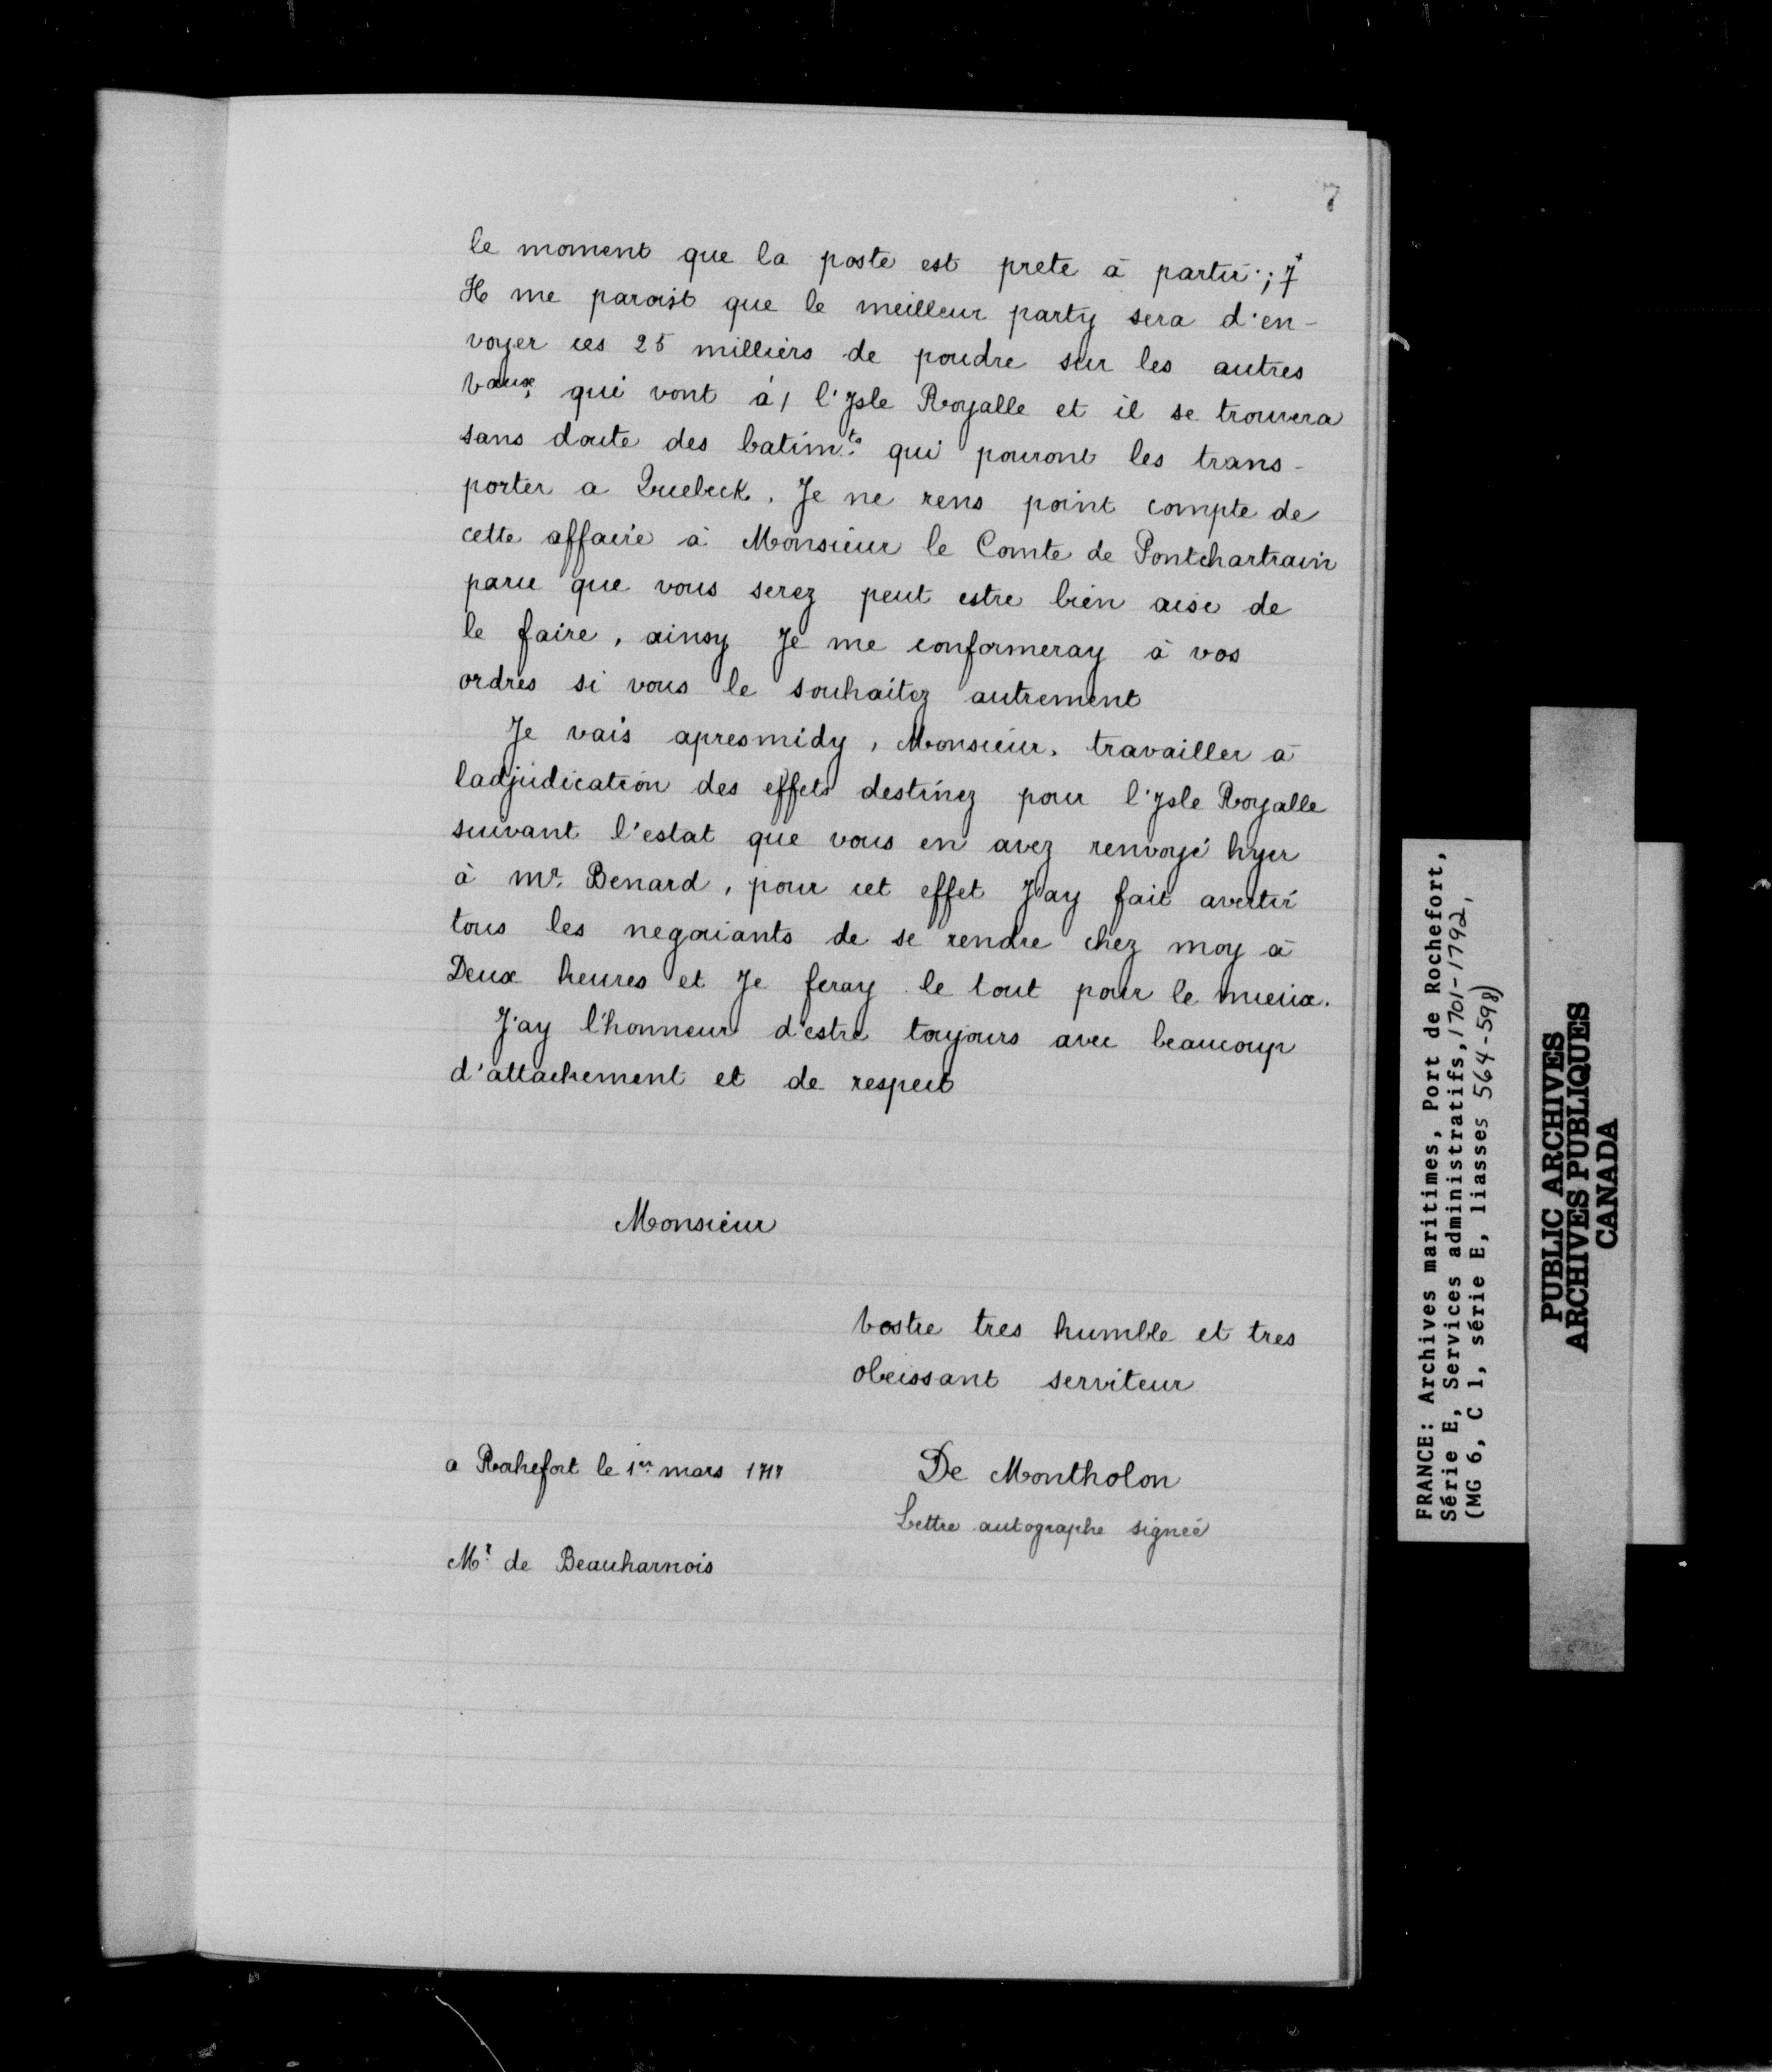 7
le moment que la poste est prete à partir; 7
Il me paroist que le meilleur party sera d'en-
voyer ces 25 milliers de poudre sur les autres
vaux, qui vont à l'Isle Royalle et il se trouvera
sans doute des batimts qui pouront les trans-
porter a Quebeck. Je ne rens point compte de
cette affaire à Monsieur le Comte de Pontchartrain
parce que vous serez peut estre bien aise de
le faire, ainsy Je me conformeray à vos
ordres si vous le souhaitez autrement
Je vais apresmidy, Monsieur, travailler à
ladjudication des effets destinez pour l'Isle Royalle
suivant l'estat que vous en avez renvoyé hyer
à mr. Benard, pour cet effet J'ay fait avertir
tous les negociants de se rendre chez moy à
Deux heures et Je feray le tout pour le mieux.
J'ay l'honneur d'estre toujours avec beaucoup
d'attachement et de respect
Monsieur
Vostre tres humble et tres
obeissant serviteur
a Rochefort le 1er mars
De Montholon
Lettre autographe signée
Mr. de Beauharnois
FRANCE: Archives maritimes, Port de Rochefort,
Série E, Services administratifs, 1701-1792,
(MG 6, C 1, série E, liasses 564-598)
PUBLIC ARCHIVES
ARCHIVES PUBLIQUES
CANADA